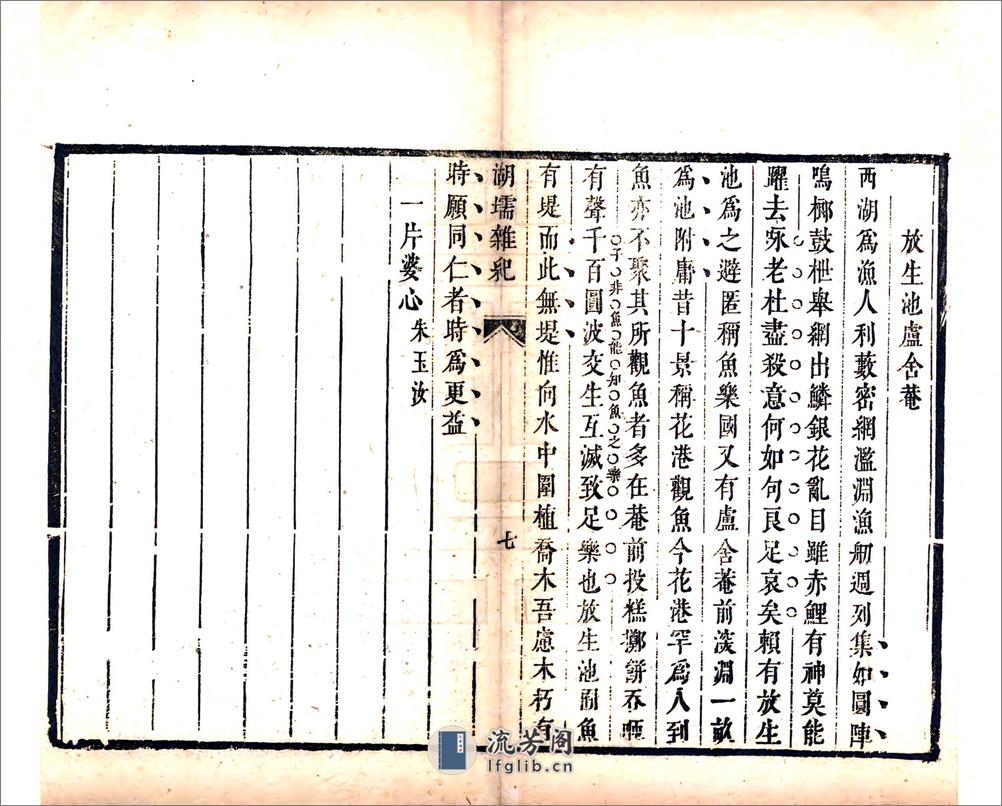 放生池盧舍菴
西湖爲漁人利藪密網濫淵漁舠週列集如圓陣
鳴榔鼓枻舉網出鱗銀花亂目雖赤鯉有神莫能
躍去咏老杜盡殺意何如句良足哀矣賴有放生
池爲之避匿稱魚樂國又有盧舍菴前淡淵一畝
爲池附庸昔十景稱花港觀魚今花港罕爲人到
魚亦不聚其所觀魚者多在菴前投糕擲餅吞唼
子非魚能知魚之樂
有聲千百圍波交生互滅致足樂也放生池南魚
有堤而此無堤惟向水中圍植喬木吾慮木朽有
湖壖雜紀
七
時願同仁者時爲更益
一片婆心 朱玉汝
流芳阁
lfglib.cn